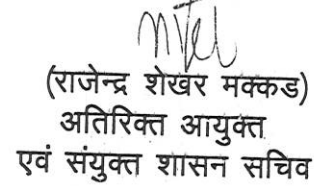 (राजेन्द्र शेखर मक्कड)
अतिरिक्त आयुक्त
एवं संयुक्त शासन सचिव